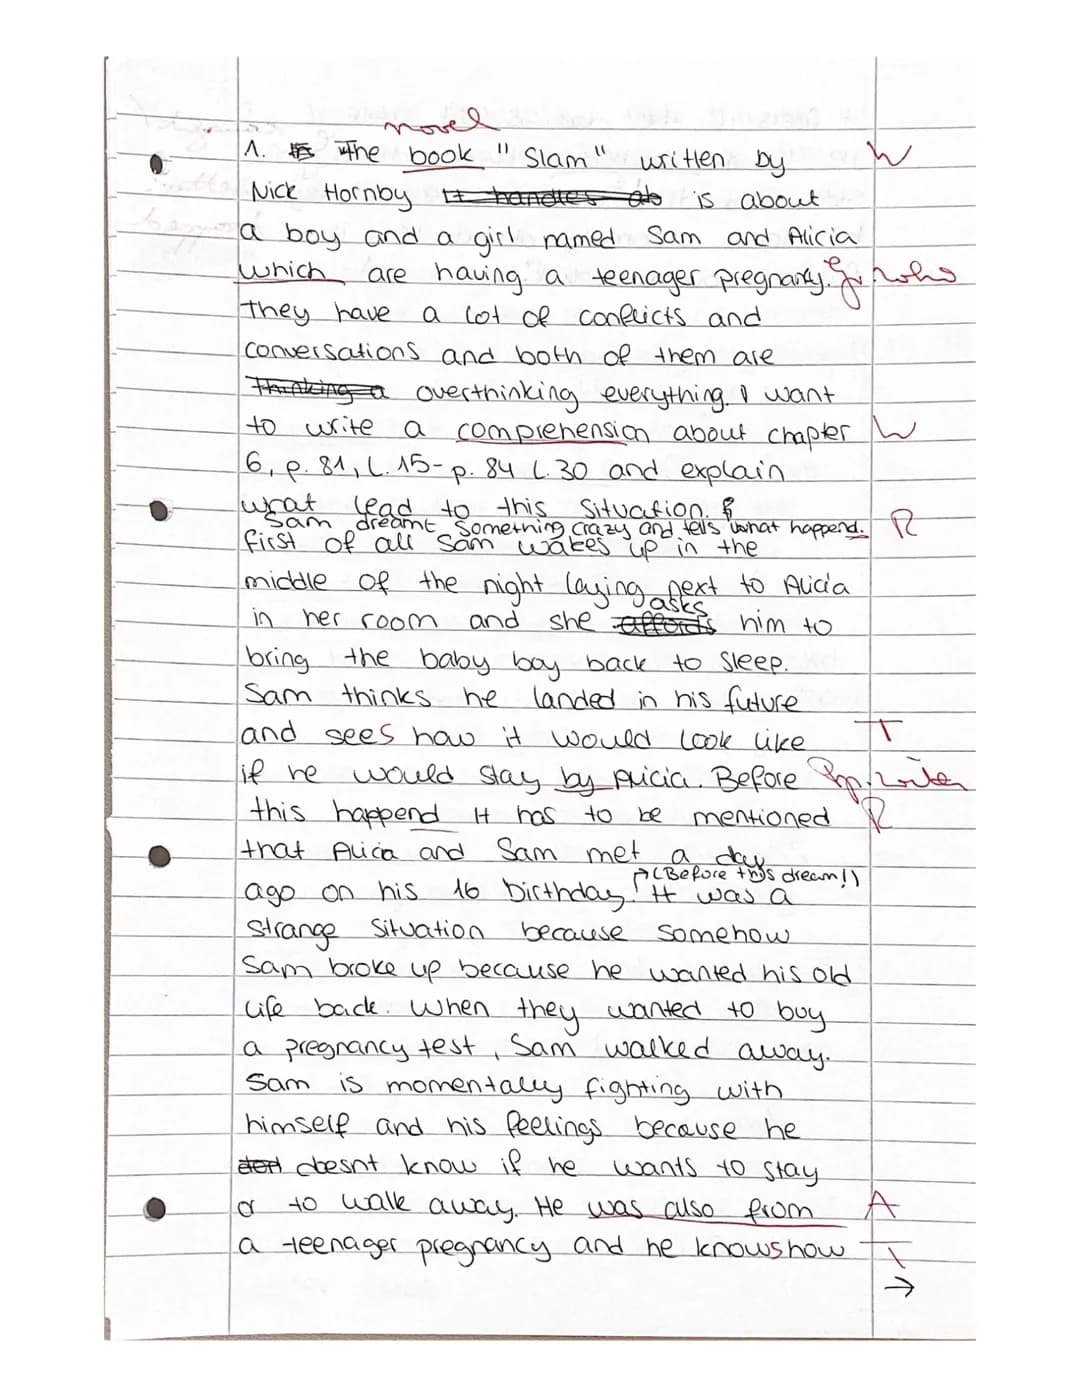 novel
1. The book "Slam" written by W
Nick Hornby It handles ab is about
a boy and a girl named Sam and Alicia
which are having a teenager pregnancy. Gr. who
they have a lot of conflicts and
conversations and both of them are
Thinking a overthinking everything. I want
to write a comprehension about chapter W
6, p. 81, L. 15- p. 84 L. 30 and explain
what lead to this situation.
Sam dreamt something crazy and tells what happend. R
first of all Sam wakes up in the
middle of the night laying next to Alicia
asks
in her room and she affords him to
bring the baby boy back to sleep.
Sam thinks he landed in his future
and sees how it would look like T
if he would stay by Alicia. Before
this happend It has to be mentioned R
that Alicia and Sam met a day
(Before this dream!)
ago on his 16 birthday. It was a
strange situation because somehow
Sam broke up because he wanted his old
life back. When they wanted to buy
a pregnancy test, Sam walked away.
Sam is momentally fighting with
himself and his feelings because he
doesnt know if he wants to stay
or to walk away. He was also from A
a teenager pregnancy and he knows how T
→